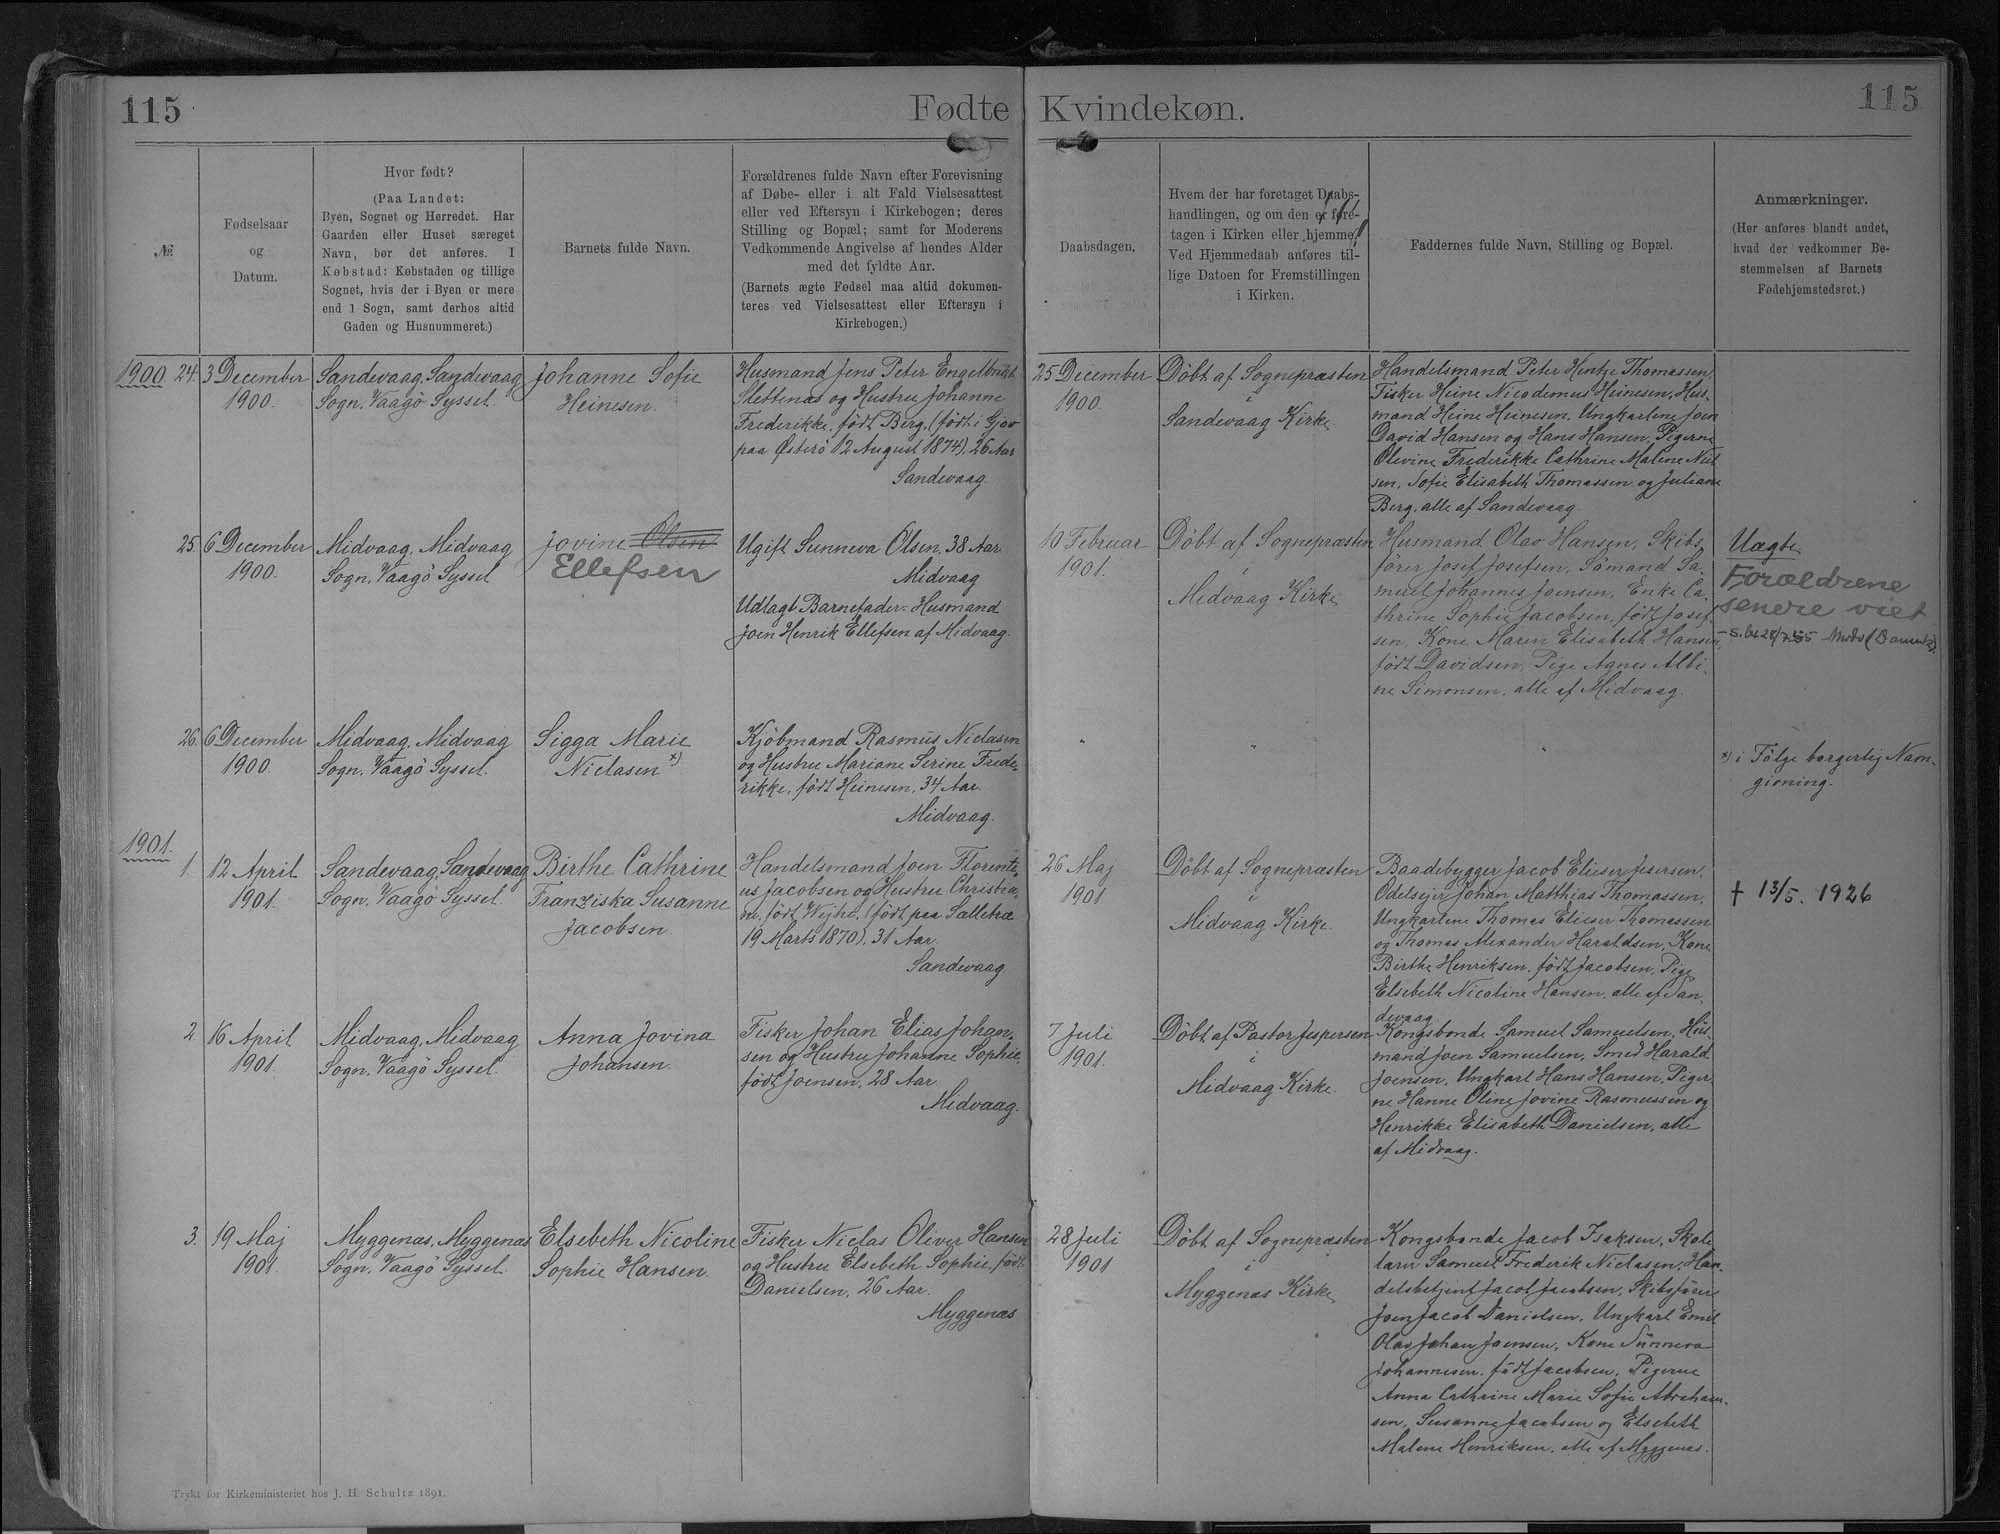 115
Fødte Kvindekøn.
115
№
Fødselsaar
og
Datum.
Hvor født?
(Paa Landet:
Byen, Sognet og Herredet. Har
Gaarden eller Huset særeget
Navn, bør det anføres. I
Købstad: Købstaden og tillige
Sognet, hvis der i Byen er mere
end 1 Sogn, samt derhos altid
Gaden og Husnummeret.)
Barnets fulde Navn.
Forældrenes fulde Navn efter Forevisning
af Døbe- eller i alt Fald Vielsesattest
eller ved Eftersyn i Kirkebogen; deres
Stilling og Bopæl; samt for Moderens
Vedkommende Angivelse af hendes Alder
med det fyldte Aar.
(Barnets ægte Fødsel maa altid dokumen-
teres ved Vielsesattest eller Eftersyn i
Kirkebogen.)
Daabsdagen.
Hvem der har foretaget Daabs-
handlingen, og om den er fore-
tagen i Kirken eller hjemme.
Ved Hjemmedaab anføres til-
lige Datoen for Fremstillingen
i Kirken.
Faddernes fulde Navn, Stilling og Bopæl.
Anmærkninger.
(Her anføres blandt andet,
hvad der vedkommer Be-
stemmelsen af Barnets
Fødehjemstedsret.)
1900. 24.
3 December
1900.
Sandevaag, Sandevaag
Sogn, Vaagö Syssel.
Johanne Sofie
Heinesen.
Husmand Jens Peter Engelbrekt
og Hustru Johanne
Frederikke, født Berg, (født i Gjov
paa Østerö 12 August 1874), 26 Aar
Sandevaag.
25 December
1900.
Döbt af Sognepræsten
i
Sandevaag Kirke
Handelsmand Peter Hentze Thomassen,
Fisker Heine Nicodemus Heinesen, Hus-
mand Heine Heinesen, Ungkarlene Joen
David Hansen og Hans Hansen, Pigerne
Olevine Frederikke Cathrine Malene Niel-
sen, Sofie Elisabeth Thomassen og Juliane
Berg, alle af Sandevaag.
25.
6 December
1900.
Midvaag, Midvaag
Sogn, Vaagö Syssel
Jovine Olsen
Ellefsen
Ugift Sunneva Olsen, 38 Aar
Midvaag
Udlagt Barnefader: Husmand
Joen Henrik Ellefsen af Midvaag.
10 Februar
1901.
Döbt af Sognepræsten
i
Midvaag Kirke
Husmand Olav Hansen, Skibs-
förer Josef Josefsen, Sömand Sa-
muel Johannes Joensen, Enke Ca-
thrine Sophie Jacobsen, født Josef-
sen, Kone Maren Elisabeth Hansen,
født Davidsen, Pige Agnes Albi-
ne Simonsen, alle af Midvaag.
Uægte.
Forældrene
senere viet
26.
6 December
1900.
Midvaag, Midvaag
Sogn, Vaagö Syssel.
Sigga Marie
Niclasen x)
Kjöbmand Rasmus Niclasen
og Hustru Mariane Serine Frede-
rikke, født Heinesen, 34 Aar.
Midvaag.
"
"
"
x) i Følge borgerlig Navn-
givning.
1901.
1.
12 April
1901.
Sandevaag, Sandevaag
Sogn, Vaagö Syssel.
Birthe Cathrine
Franziska Susanne
Jacobsen
Handelsmand Joen Florenti-
us Jacobsen og Hustru Christia-
ne, født Wejhe, (født paa
19 Marts 1870), 31 Aar.
Sandevaag
26 Maj
1901
Döbt af Sognepræsten
i
Midvaag Kirke.
Baadebygger Jacob Elieser Jesersen,
Odelsejer Johan Matthias Thomassen,
Ungkarlene Thomas Elieser Thomassen
og Thomas Alexander Haraldsen, Kone
Birthe Henriksen, født Jacobsen, Pige
Elsebeth Nicoline Hansen, alle af San-
devaag.
† 13/5. 1926
2.
16 April
1901.
Midvaag, Midvaag
Sogn, Vaagö Syssel.
Anna Jovina
Johansen.
Fisker Johan Elias Johan-
sen og Hustru Johanne Sophie,
født Joensen, 28 Aar.
Midvaag.
7 Juli
1901.
Döbt af Pastor Jespersen
i
Midvaag Kirke.
Kongsbonde Samuel Samuelsen, Hus-
mand Joen Samuelsen, Smed Harald
Joensen, Ungkarl Hans Hansen, Piger-
ne Hanne Oline Jovine Rasmussen og
Henrikke Elisabeth Danielsen, alle
af Midvaag.
3.
19 Maj
1901.
Myggenæs, Myggenæs
Sogn, Vaagö Syssel.
Elsebeth Nicoline
Sophie Hansen.
Fisker Niclas Oliver Hansen
og Hustru Elsebeth Sophie, født
Danielsen, 26 Aar.
Myggenæs
28 Juli
1901
Döbt af Sognepræsten
i
Myggenæs Kirke
Kongsbonde Jacob Isaksen, Skole-
lærer Samuel Frederik Niclasen, Han-
delsbetjent Jacob Jacobsen, Skibsförer
Joen Jacob Danielsen, Ungkarl Emil
Olav Johan Joensen, Kone Sunneva
Johannesen, født Jacobsen, Pigerne
Anna Cathrine Marie Sofie Abraham-
sen, Susanne Jacobsen og Elsebeth
Malene Henriksen, alle af Myggenæs.
Trykt for Kirkeministeriet hos J. H. Schultz 1891.